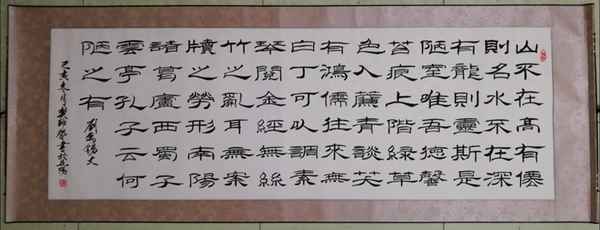 山不在高有僊
則名水不在深
有龍則靈斯是
陋室唯吾德馨
苔痕上階緑草
色入簾青談笑
有鴻儒往來無
白丁可以調素
琴閱金經無絲
竹之亂耳無案
牘之勞形南陽
諸葛廬西蜀子
雲亭孔子云何
陋之有
劉禹錫文
己亥冬月書於